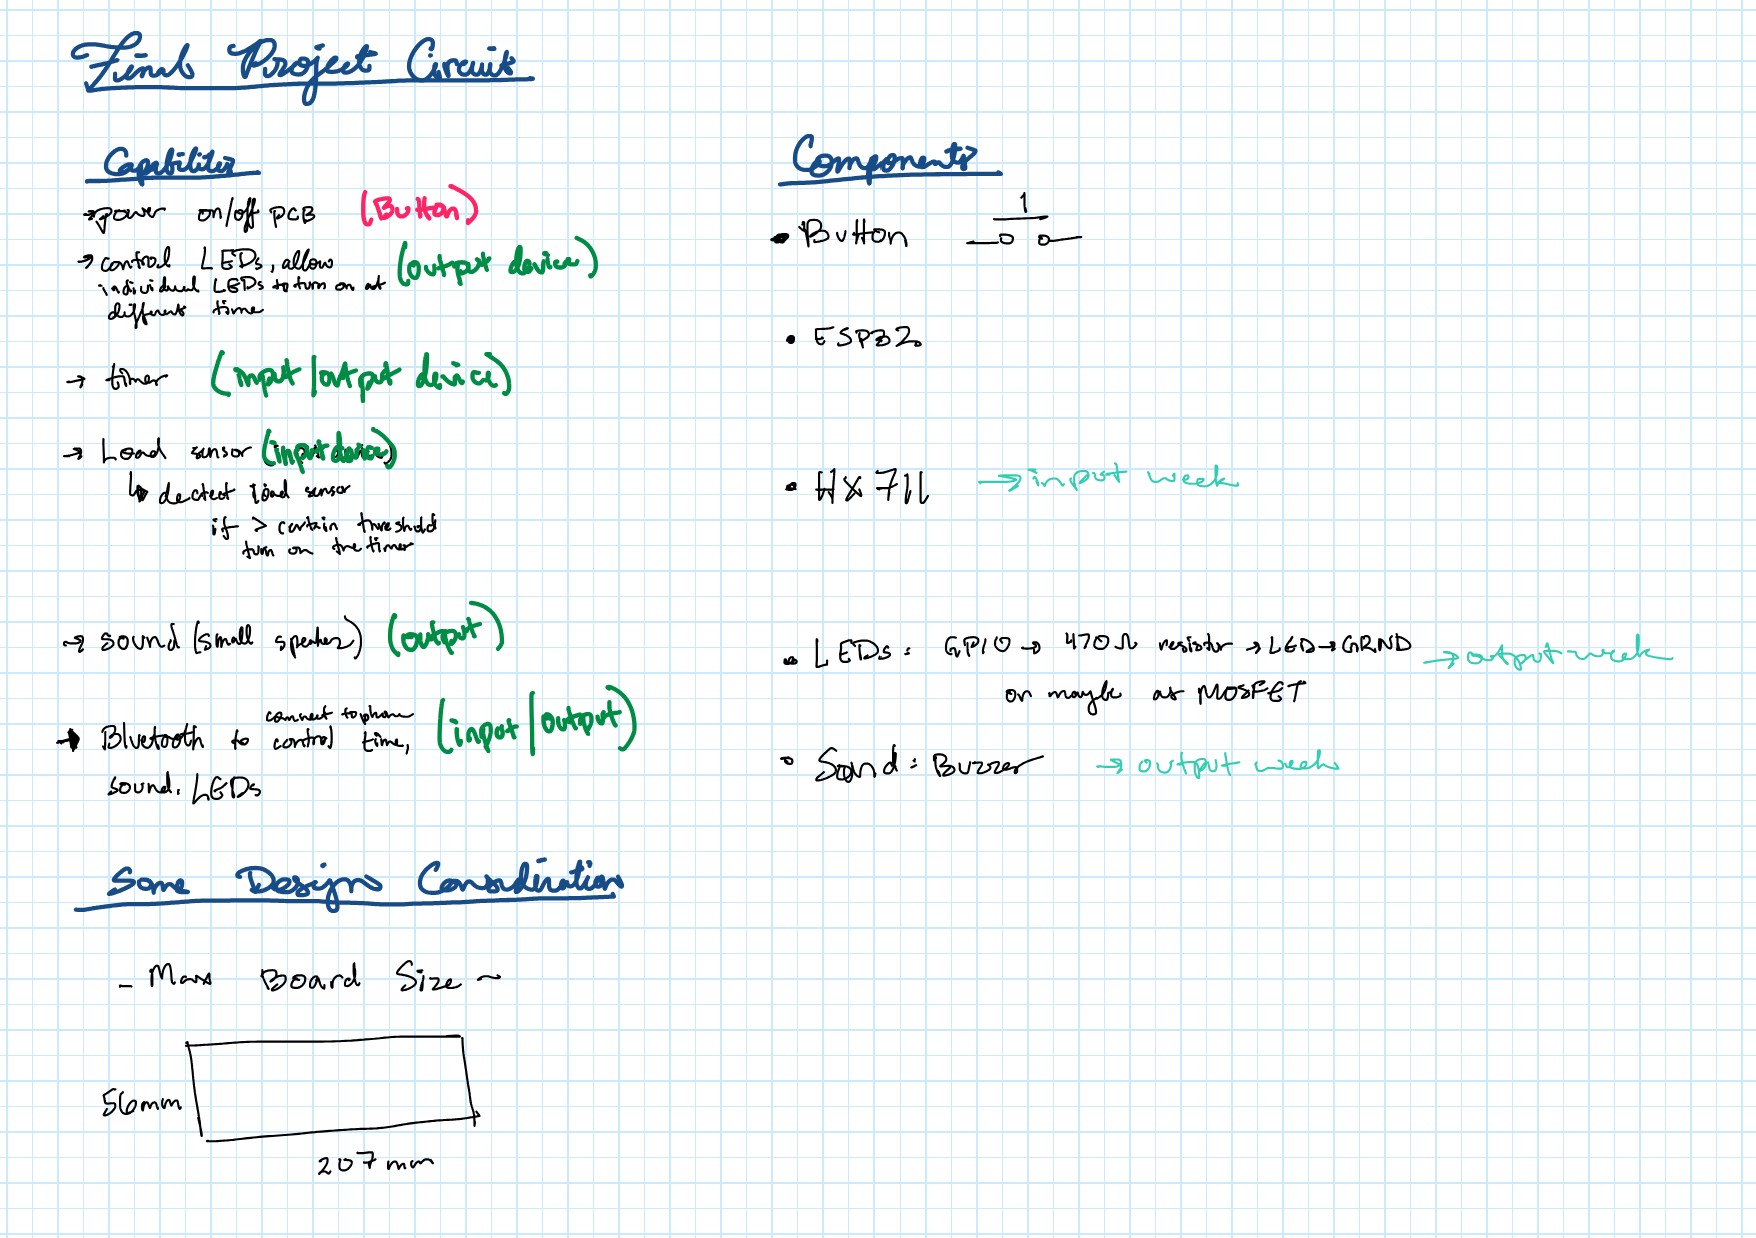 Final Project Circuit
Capabilities
→ power on/off PCB (Button)
→ control LEDs, allow (output device)
individual LEDs to turn on at
different time
→ timer (input/output device)
→ Load sensor (input device)
↳ dectect load sensor
if > certain threshold
turn on the timer
→ sound (small speaker) (output)
connect to phone
→ Bluetooth to control time, (input/output)
sound, LEDs
Some Design Considerations
- Max Board Size ~
56mm
207mm
Components
• Button
1
• ESP32
• HX711 → input week
• LEDs: GPIO → 470Ω resistor → LED → GRND → output week
or maybe as MOSFET
• Sound: Buzzer → output week